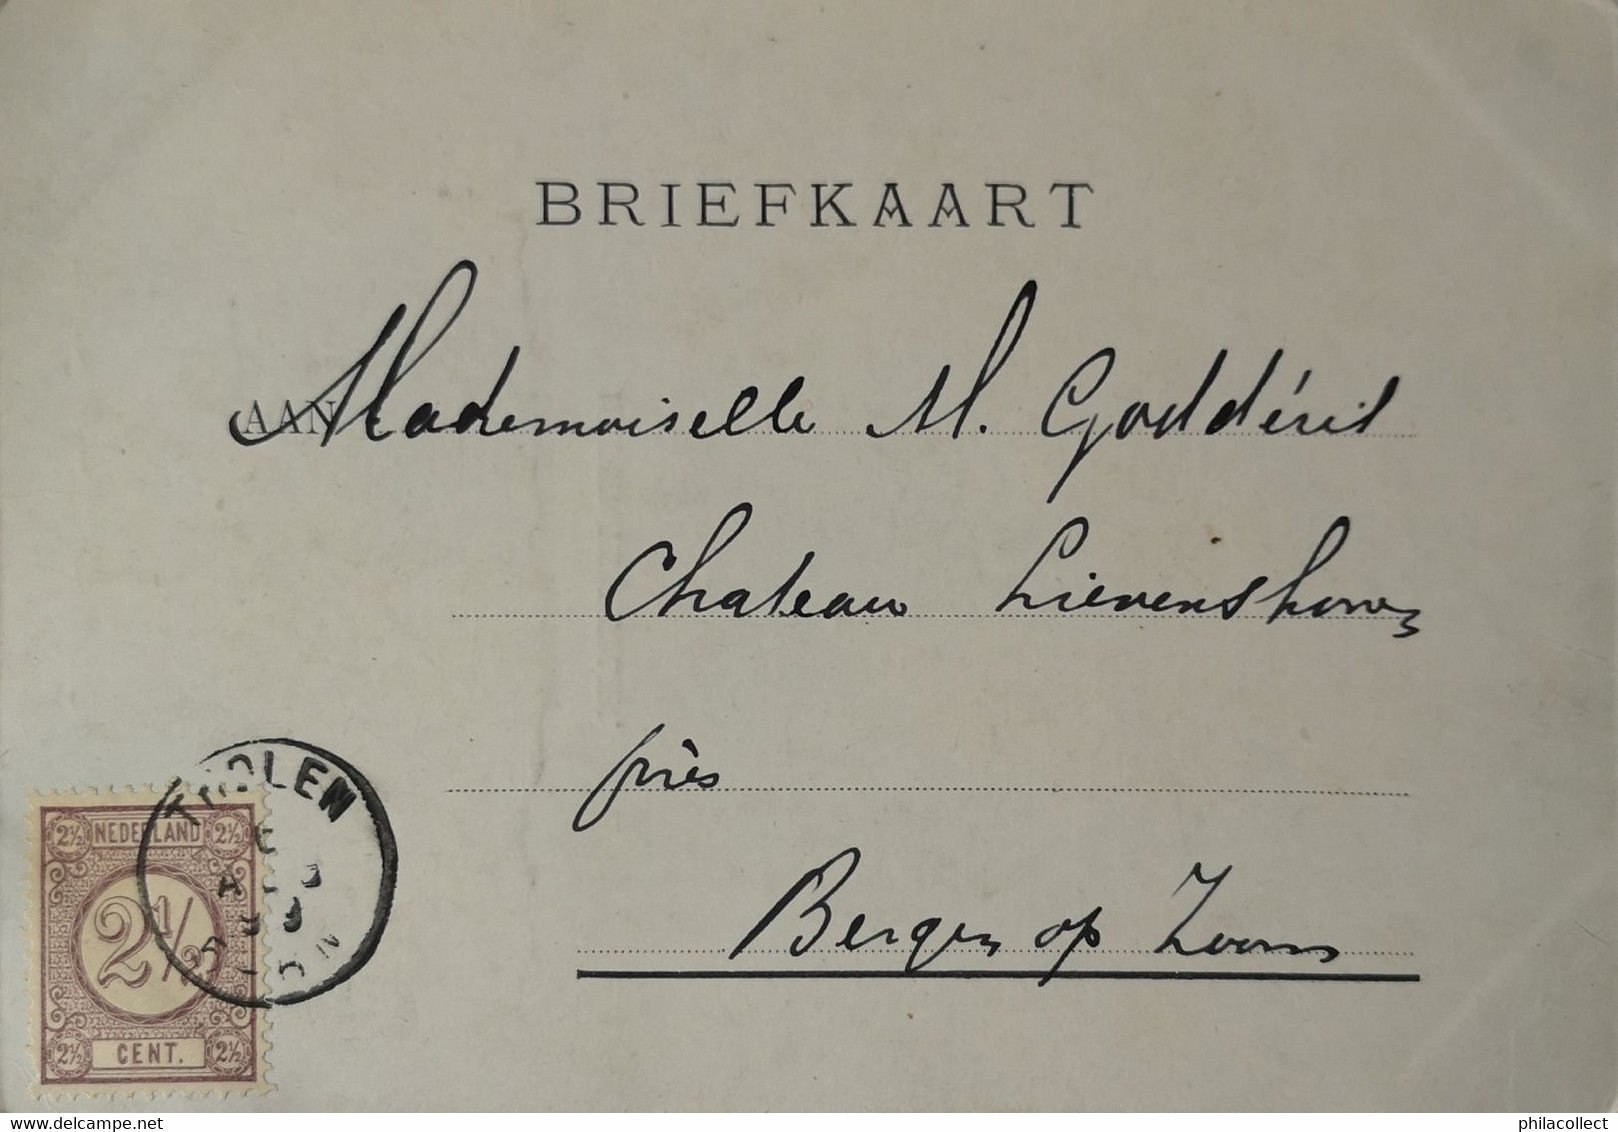 BRIEFKAART
AAN Mademoiselle M. Goddéris
Chateau Lievenshove
près
Bergen op Zoom
THOLEN
2½ NEDERLAND 2½
2½
2½ CENT. 2½
delcampe.net
philacollect